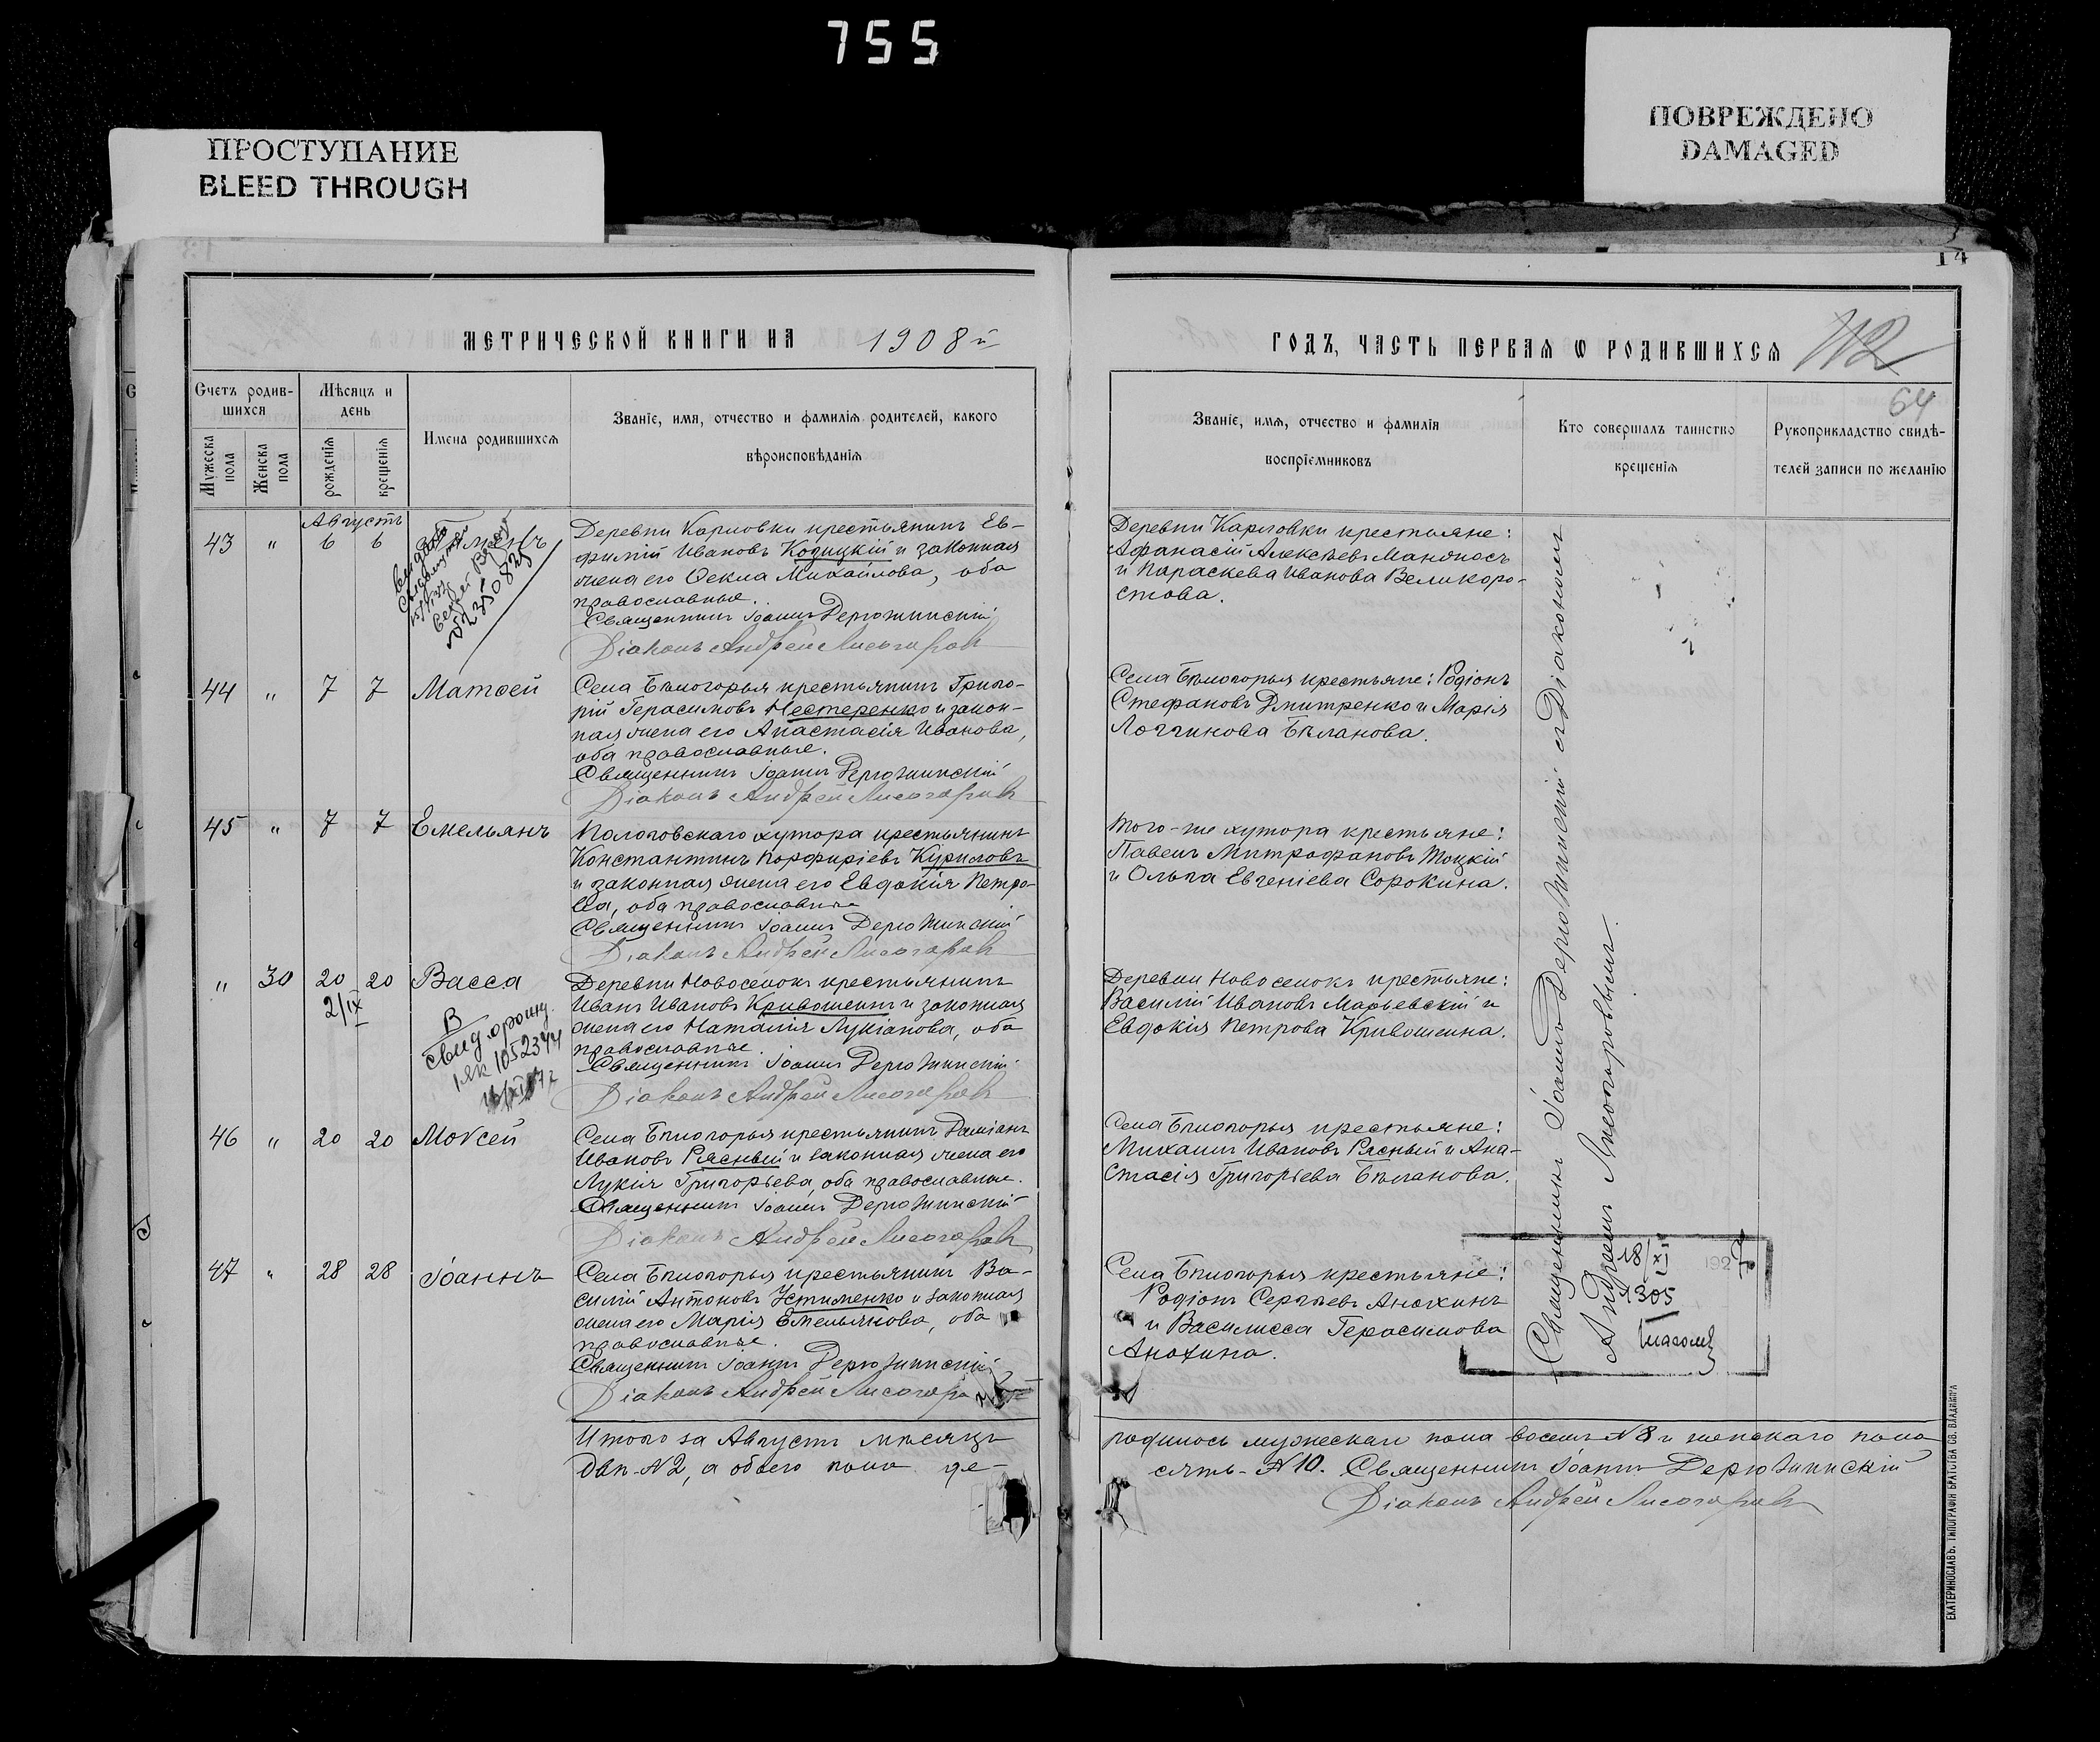 755
ПРОСТУПАНИЕ
BLEED THROUGH
ПОВРЕЖДЕНО
DAMAGED
14
МЕТРИЧЕСКОЙ КНИГИ НА 1908й
ГОДЪ, ЧАСТЬ ПЕРВАЯ Ѡ РОДИВШИХСЯ
64
Счетъ родив-
шихся
Мужеска пола
Женска пола
Мѣсяцъ и
день
рожденія
крещенія
Имена родившихся
Званіе, имя, отчество и фамилія родителей, какого
вѣроисповѣданія
Званіе, имя, отчество и фамилія
воспріемниковъ
Кто совершалъ таинство
крещенія
Рукоприкладство свидѣ-
телей записи по желанію
Августъ
43 " 6 6
№ 2350835
Деревни Карловки крестьянинъ Ев-
фимій Ивановъ Козицкій и законная
жена его Ѳекла Михайлова, оба
православные.
Священникъ Іоаннъ Дерюжинскій
Діаконъ Андрей Лисогоровъ
Деревни Карловки крестьяне:
Афанасій Алексѣевъ Маняносъ
и Параскева Иванова Великоро-
стова.
44 " 7 7 Матѳей
Села Бѣлогорья крестьянинъ Григо-
рій Герасимовъ Нестеренко и закон-
ная жена его Анастасія Иванова,
оба православные.
Священникъ Іоаннъ Дерюжинскій
Діаконъ Андрей Лисогоровъ
Села Бѣлогорья крестьяне: Родіонъ
Стефановъ Дмитренко и Марія
Логгинова Бѣланова.
45 " 7 7 Емельянъ
Пологовскаго хутора крестьянинъ
Константинъ Порфиріевъ Куриловъ
и законная жена его Евдокія Петро-
ва, оба православные
Священникъ Іоаннъ Дерюжинскій
Діаконъ Андрей Лисогоровъ
Того-же хутора крестьяне:
Павелъ Митрофановъ Тоцкій
и Ольга Евгеніева Сорокина.
" 30 20 20 Васса
2/IX
В
1052344
Деревни Новоселокъ крестьянинъ
Иванъ Ивановъ Кривошеинъ и законная
жена его Наталія Лукіанова, оба
православные.
Священникъ Іоаннъ Дерюжинскій
Діаконъ Андрей Лисогоровъ
Деревни Новоселокъ крестьяне:
Василій Ивановъ Марьевскій и
Евдокія Петрова Кривошеина.
46 " 20 20 Моѵсей
Села Бѣлогорья крестьянинъ Даміанъ
Ивановъ Рясный и законная жена его
Лукія Григорьева, оба православные.
Священникъ Іоаннъ Дерюжинскій
Діаконъ Андрей Лисогоровъ
Села Бѣлогорья крестьяне:
Михаилъ Ивановъ Рясный и Ана-
стасія Григорьева Бѣланова.
47 " 28 28 Іоаннъ
Села Бѣлогорья крестьянинъ Ва-
силій Антоновъ Устименко и законная
жена его Марія Емельянова, оба
православные.
Священникъ Іоаннъ Дерюжинскій
Діаконъ Андрей Лисогоровъ
Села Бѣлогорья крестьяне:
Родіонъ Сергѣевъ Анохинъ
и Василисса Герасимова
Анохина.
Священникъ Іоаннъ Дерюжинскій съ Діакономъ
Андреемъ Лисогоровымъ.
18/XI 1927
1305
Итого за Августъ мѣсяцъ родилось мужескаго пола восемь №8 и женскаго пола
двѣ №2, а обоего пола десять №10. Священникъ Іоаннъ Дерюжинскій
Діаконъ Андрей Лисогоровъ
ЕКАТЕРИНОСЛАВЪ. ТИПОГРАФІЯ БРАТСТВА СВ. ВЛАДИМІРА